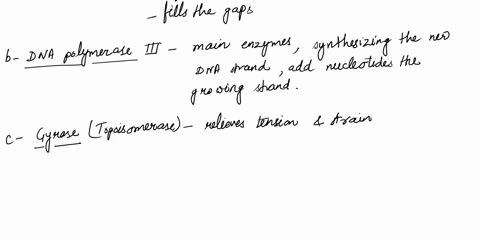 - fills the gaps
b- DNA polymerase III - main enzymes, synthesizing the new
DNA strand, add nucleotides the
growing strand.
c- Gyrase (Topoisomerase) - relieves tension & strain